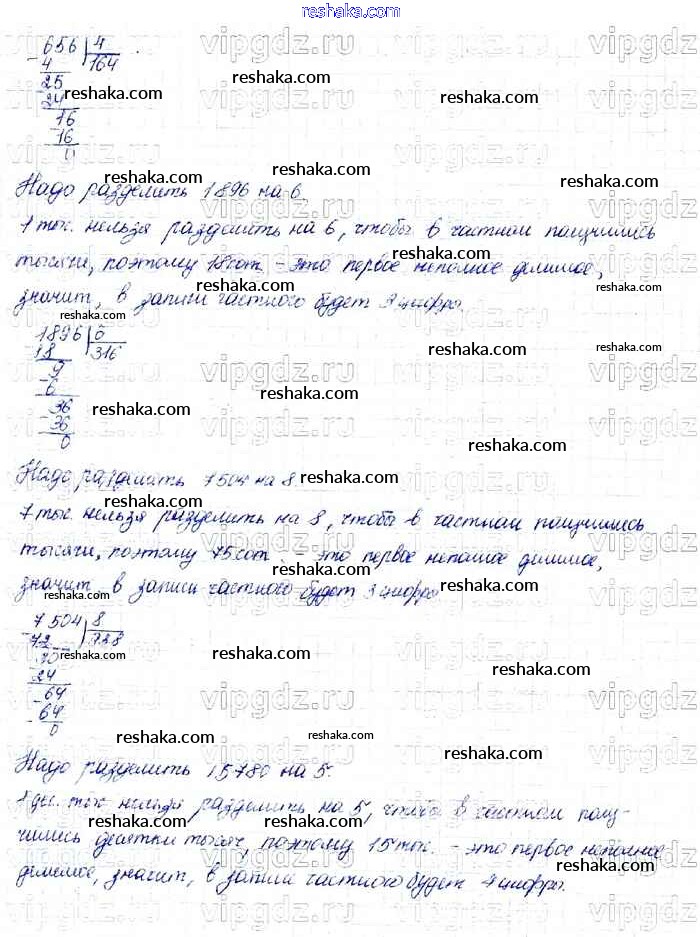 reshaka.com
656 4
4 164
25
24
16
16
0
Надо разделить 1896 на 6.
1 тыс. нельзя разделить на 6, чтобы в частном получились
тысячи, поэтому 18 сот. - это первое неполное делимое,
значит, в записи частного будет 3 цифры.
1896 6
18 316
9
6
36
36
0
Надо разделить 7504 на 8.
7 тыс. нельзя разделить на 8, чтобы в частном получились
тысячи, поэтому 75 сот. - это первое неполное делимое,
значит в записи частного будет 3 цифры
7504 8
72
30
24
64
64
0
Надо разделить 15780 на 5.
1 дес. тыс нельзя разделить на 5, чтобы в частном полу-
чились десятки тысяч, поэтому 15 тыс. - это первое неполное
делимое, значит, в записи частного будет 4 цифры.